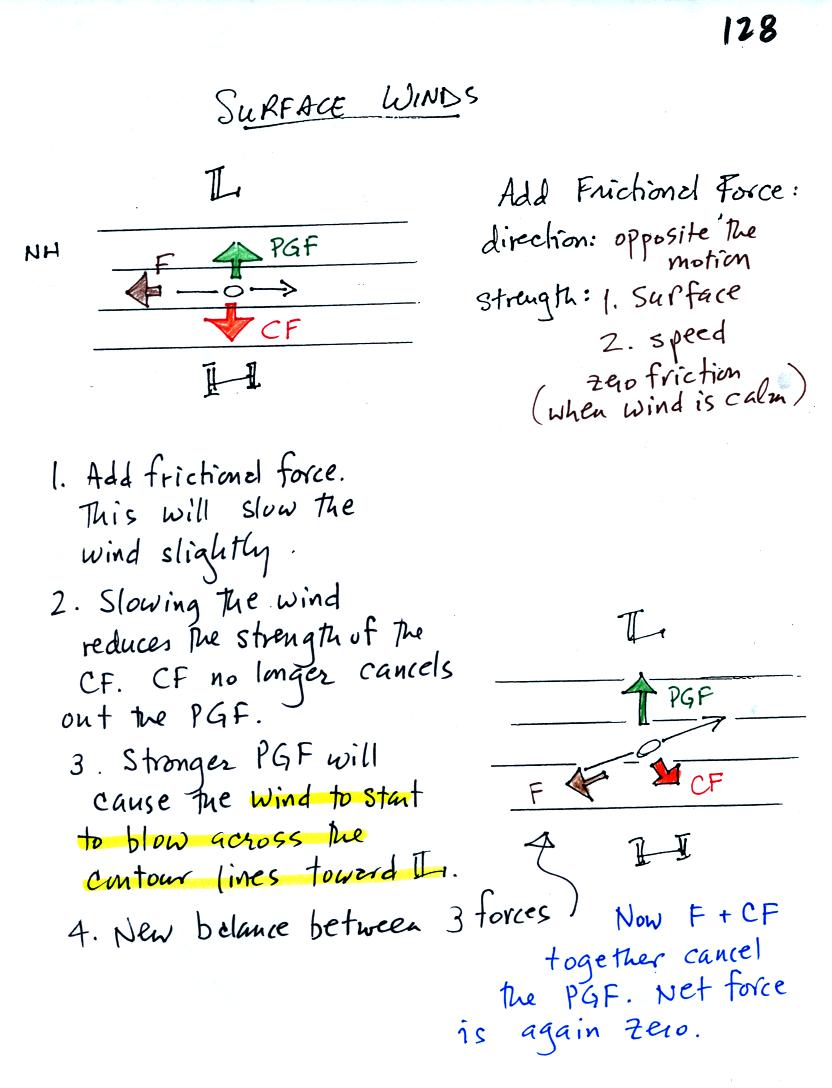 128
SURFACE WINDS
L
NH
PGF
F
CF
H
Add Frictional Force:
direction: opposite the
motion
strength: 1. surface
2. speed
zero friction
(when wind is calm)
1. Add frictional force.
This will slow the
wind slightly.
2. Slowing the wind
reduces the strength of the
CF. CF no longer cancels
out the PGF.
3. Stronger PGF will
cause the wind to start
to blow across the
contour lines toward L.
4. New balance between 3 forces
L
PGF
F
CF
H
Now F + CF
together cancel
the PGF. Net force
is again zero.